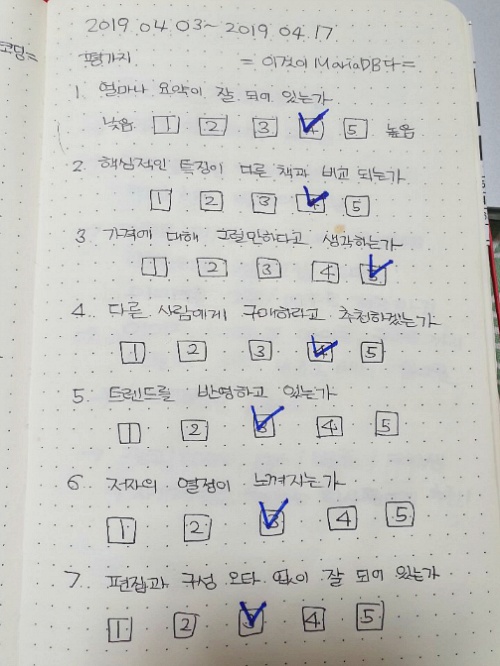 코딩=
2019 04 03~ 2019 04. 17
평가지 = 이것이 MariaDB다 =
1 얼마나 요약이 잘 되어 있는가
낮음 1 2 3 4 5 높음
2. 핵심적인 특징이 다른 책과 비교 되는가
1 2 3 4 5
3 가격에 대해 그럴만하다고 생각하는가
1 2 3 4 5
4. 다른 사람에게 구매하라고 추천하겠는가
1 2 3 4 5
5. 트렌드를 반영하고 있는가
1 2 3 4 5
6. 저자의 열정이 느껴지는가
1 2 3 4 5
7. 편집과 구성 오타 없이 잘 되어 있는가
1 2 3 4 5